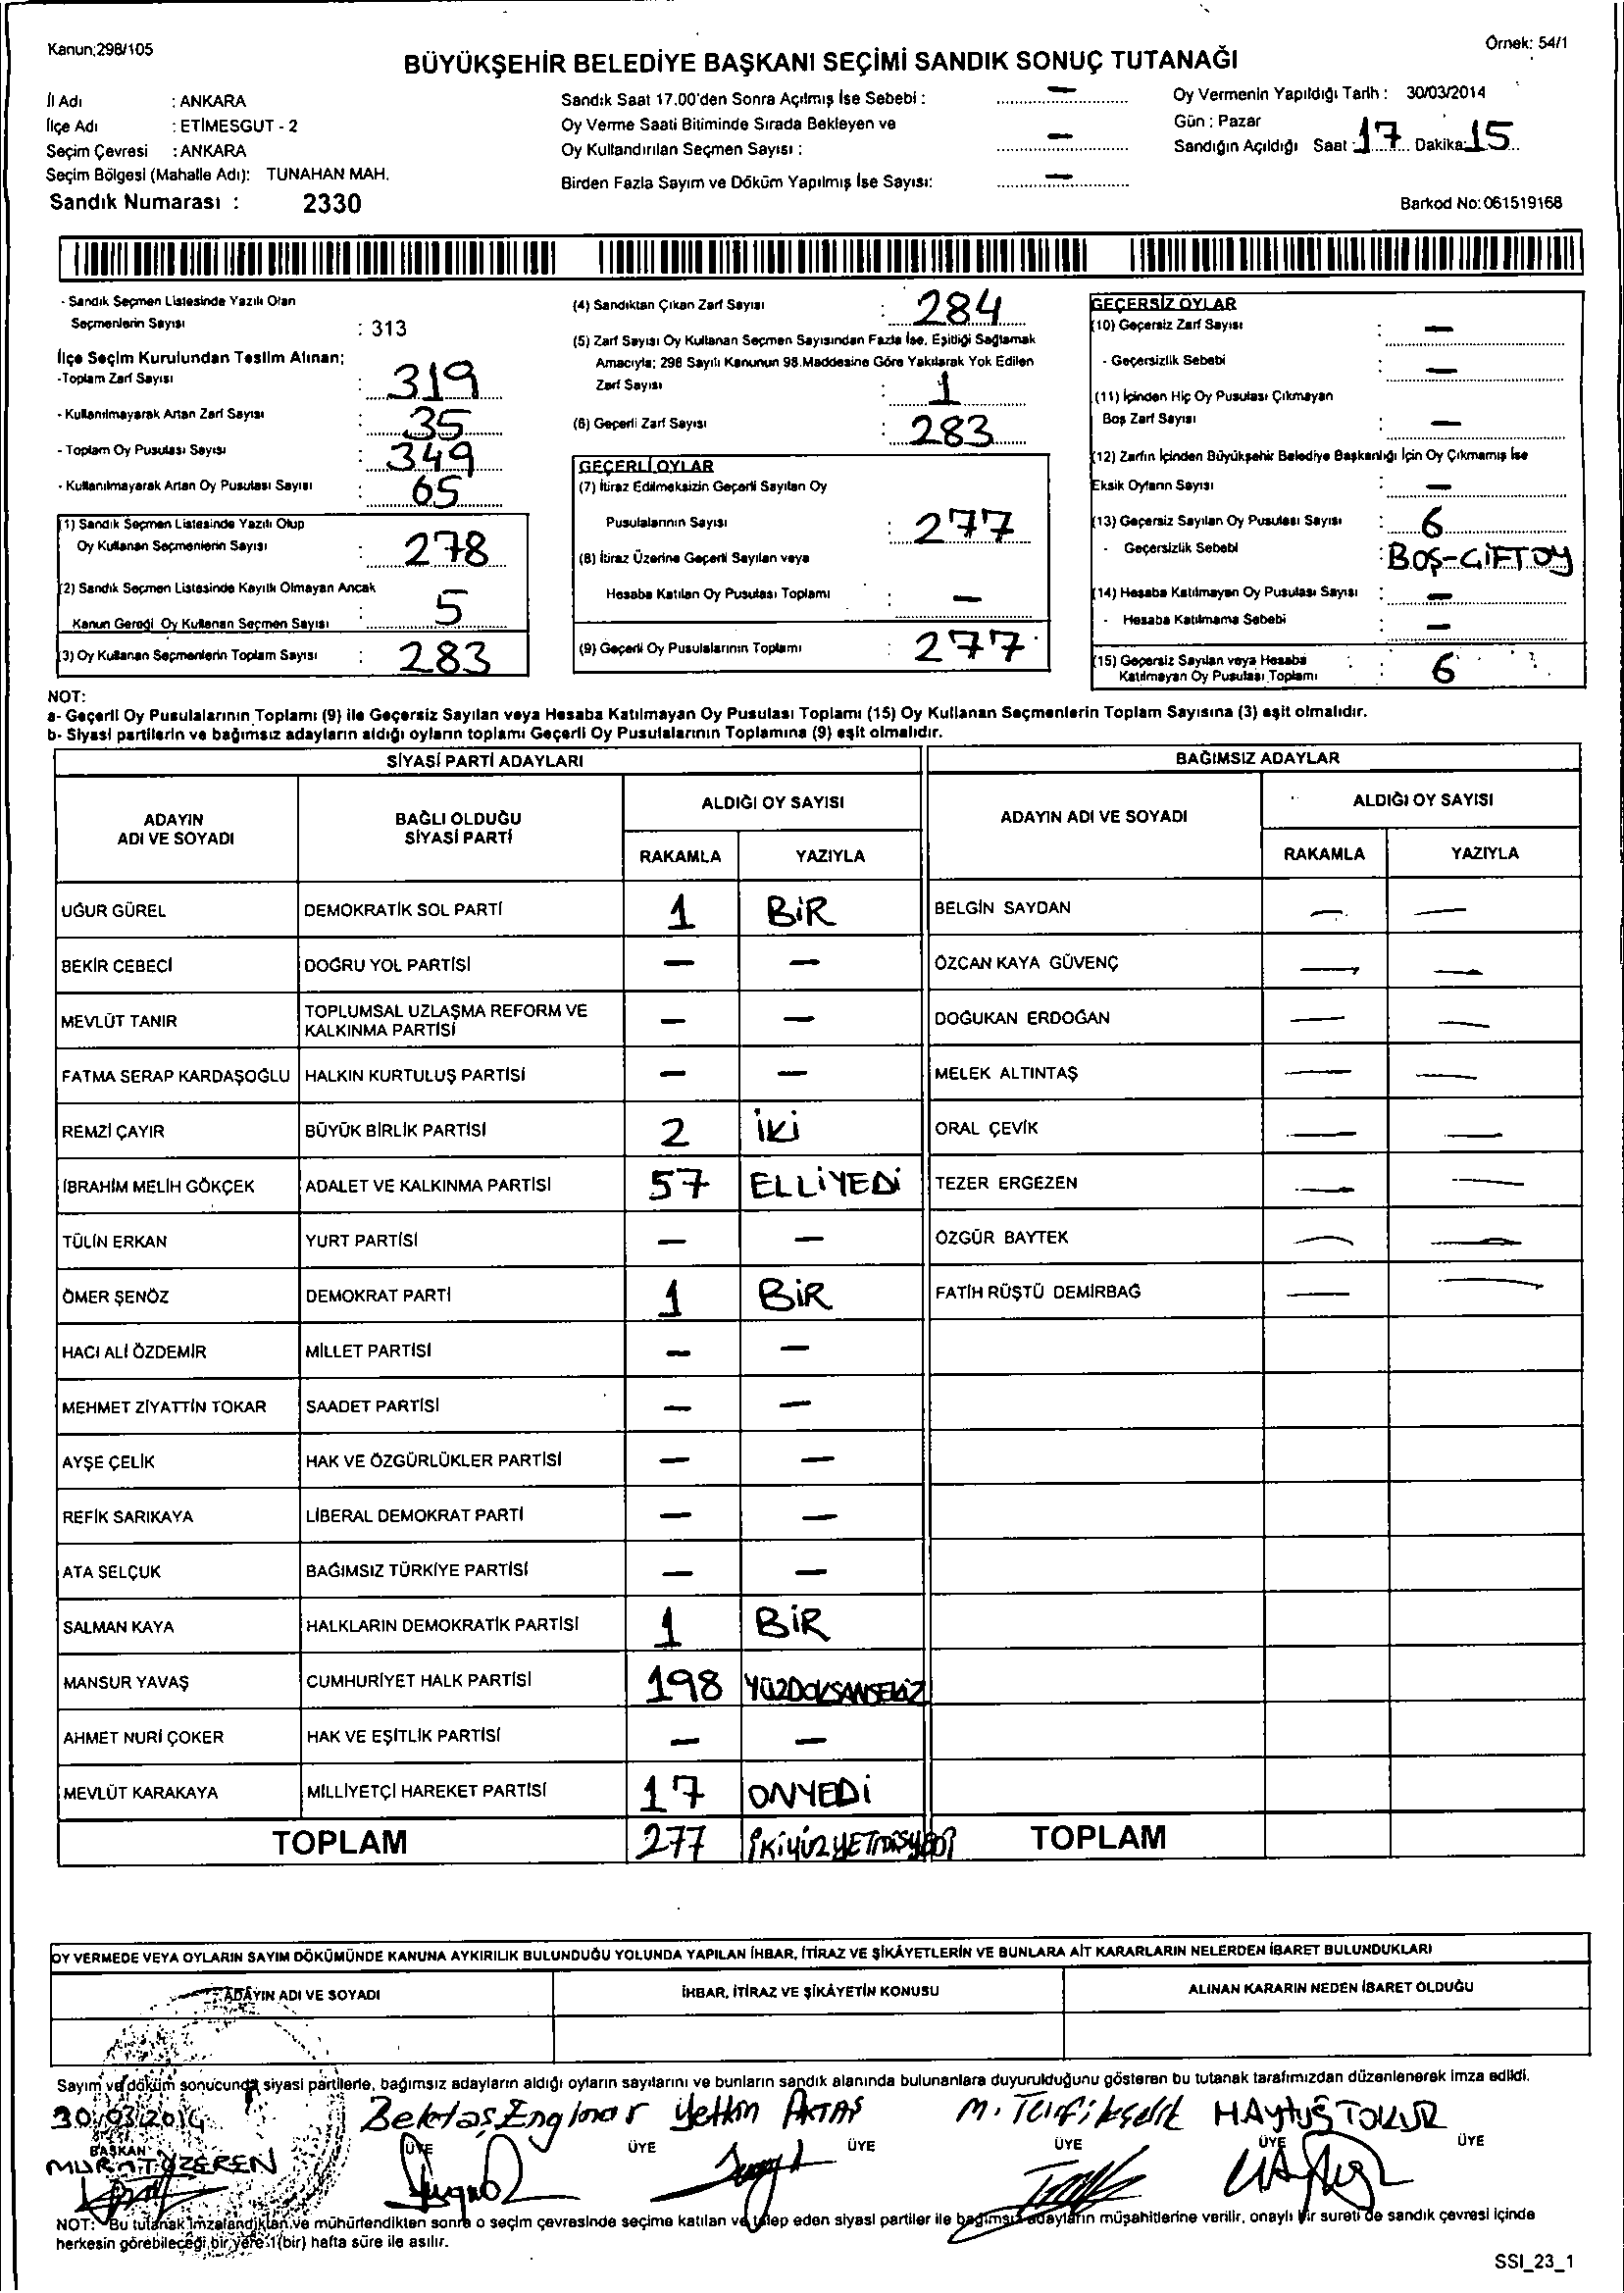 Kanun;298/105
Örnek: 54/1
BÜYÜKŞEHİR BELEDİYE BAŞKANI SEÇİMİ SANDIK SONUÇ TUTANAĞI
İl Adı : ANKARA
İlçe Adı : ETİMESGUT - 2
Seçim Çevresi : ANKARA
Seçim Bölgesi (Mahalle Adı): TUNAHAN MAH.
Sandık Numarası : 2330
Sandık Saat 17.00'den Sonra Açılmış İse Sebebi : —
Oy Verme Saati Bitiminde Sırada Bekleyen ve
Oy Kullandırılan Seçmen Sayısı : —
Birden Fazla Sayım ve Döküm Yapılmış İse Sayısı: —
Oy Vermenin Yapıldığı Tarih : 30/03/2014
Gün : Pazar
Sandığın Açıldığı Saat : 17 Dakika: 15
Barkod No: 061519168
- Sandık Seçmen Listesinde Yazılı Olan
Seçmenlerin Sayısı : 313
İlçe Seçim Kurulundan Teslim Alınan;
-Toplam Zarf Sayısı : 319
- Kullanılmayarak Artan Zarf Sayısı : 35
- Toplam Oy Pusulası Sayısı : 349
- Kullanılmayarak Artan Oy Pusulası Sayısı : 65
(1) Sandık Seçmen Listesinde Yazılı Olup
Oy Kullanan Seçmenlerin Sayısı : 278
(2) Sandık Seçmen Listesinde Kayıtlı Olmayan Ancak
Kanun Gereği Oy Kullanan Seçmen Sayısı : 5
(3) Oy Kullanan Seçmenlerin Toplam Sayısı : 283
(4) Sandıktan Çıkan Zarf Sayısı : 284
(5) Zarf Sayısı Oy Kullanan Seçmen Sayısından Fazla İse, Eşitliği Sağlamak
Amacıyla; 298 Sayılı Kanunun 98.Maddesine Göre Yakılarak Yok Edilen
Zarf Sayısı : 1
(6) Geçerli Zarf Sayısı : 283
GEÇERLİ OYLAR
(7) İtiraz Edilmeksizin Geçerli Sayılan Oy
Pusulalarının Sayısı : 277
(8) İtiraz Üzerine Geçerli Sayılan veya
Hesaba Katılan Oy Pusulası Toplamı : —
(9) Geçerli Oy Pusulalarının Toplamı : 277
GEÇERSİZ OYLAR
(10) Geçersiz Zarf Sayısı : —
- Geçersizlik Sebebi : —
(11) İçinden Hiç Oy Pusulası Çıkmayan
Boş Zarf Sayısı : —
(12) Zarfın İçinden Büyükşehir Belediye Başkanlığı İçin Oy Çıkmamış İse
Eksik Oyların Sayısı : —
(13) Geçersiz Sayılan Oy Pusulası Sayısı : 6
- Geçersizlik Sebebi : BOŞ-ÇİFT OY
(14) Hesaba Katılmayan Oy Pusulası Sayısı : —
- Hesaba Katılmama Sebebi : —
(15) Geçersiz Sayılan veya Hesaba
Katılmayan Oy Pusulası Toplamı : 6
NOT:
a- Geçerli Oy Pusulalarının Toplamı (9) ile Geçersiz Sayılan veya Hesaba Katılmayan Oy Pusulası Toplamı (15) Oy Kullanan Seçmenlerin Toplam Sayısına (3) eşit olmalıdır.
b- Siyasi partilerin ve bağımsız adayların aldığı oyların toplamı Geçerli Oy Pusulalarının Toplamına (9) eşit olmalıdır.
SİYASİ PARTİ ADAYLARI BAĞIMSIZ ADAYLAR
ADAYIN ADI VE SOYADI BAĞLI OLDUĞU SİYASİ PARTİ ALDIĞI OY SAYISI ADAYIN ADI VE SOYADI ALDIĞI OY SAYISI
RAKAMLA YAZIYLA RAKAMLA YAZIYLA
UĞUR GÜREL DEMOKRATİK SOL PARTİ 1 BİR BELGİN SAYDAN — —
BEKİR CEBECİ DOĞRU YOL PARTİSİ — — ÖZCAN KAYA GÜVENÇ — —
MEVLÜT TANIR TOPLUMSAL UZLAŞMA REFORM VE KALKINMA PARTİSİ — — DOĞUKAN ERDOĞAN — —
FATMA SERAP KARDAŞOĞLU HALKIN KURTULUŞ PARTİSİ — — MELEK ALTINTAŞ — —
REMZİ ÇAYIR BÜYÜK BİRLİK PARTİSİ 2 İKİ ORAL ÇEVİK — —
İBRAHİM MELİH GÖKÇEK ADALET VE KALKINMA PARTİSİ 57 ELLİYEDİ TEZER ERGEZEN — —
TÜLİN ERKAN YURT PARTİSİ — — ÖZGÜR BAYTEK — —
ÖMER ŞENÖZ DEMOKRAT PARTİ 1 BİR FATİH RÜŞTÜ DEMİRBAĞ — —
HACI ALİ ÖZDEMİR MİLLET PARTİSİ — —
MEHMET ZİYATTİN TOKAR SAADET PARTİSİ — —
AYŞE ÇELİK HAK VE ÖZGÜRLÜKLER PARTİSİ — —
REFİK SARIKAYA LİBERAL DEMOKRAT PARTİ — —
ATA SELÇUK BAĞIMSIZ TÜRKİYE PARTİSİ — —
SALMAN KAYA HALKLARIN DEMOKRATİK PARTİSİ 1 BİR
MANSUR YAVAŞ CUMHURİYET HALK PARTİSİ 198 YÜZDOKSANSEKİZ
AHMET NURİ ÇOKER HAK VE EŞİTLİK PARTİSİ — —
MEVLÜT KARAKAYA MİLLİYETÇİ HAREKET PARTİSİ 17 ONYEDİ
TOPLAM 277 İKİYÜZYETMİŞYEDİ TOPLAM
OY VERMEDE VEYA OYLARIN SAYIM DÖKÜMÜNDE KANUNA AYKIRILIK BULUNDUĞU YOLUNDA YAPILAN İHBAR, İTİRAZ VE ŞİKÂYETLERİN VE BUNLARA AİT KARARLARIN NELERDEN İBARET BULUNDUKLARI
ADAYIN ADI VE SOYADI İHBAR, İTİRAZ VE ŞİKÂYETİN KONUSU ALINAN KARARIN NEDEN İBARET OLDUĞU
Sayım ve döküm sonucunda siyasi partilerle, bağımsız adayların aldığı oyların sayılarını ve bunların sandık alanında bulunanlara duyurulduğunu gösteren bu tutanak tarafımızdan düzenlenerek imza edildi.
30/03/2014 Bektaş Yetkin AKTAŞ
BAŞKAN ÜYE ÜYE ÜYE ÜYE ÜYE ÜYE
MURAT ÖZEREN
NOT: Bu tutanak imzalandıktan ve mühürlendikten sonra o seçim çevresinde seçime katılan ve talep eden siyasi partiler ile bağımsız adayların müşahitlerine verilir, onaylı bir sureti de sandık çevresi içinde
herkesin görebileceği bir yere 1(bir) hafta süre ile asılır.
SSI_23_1